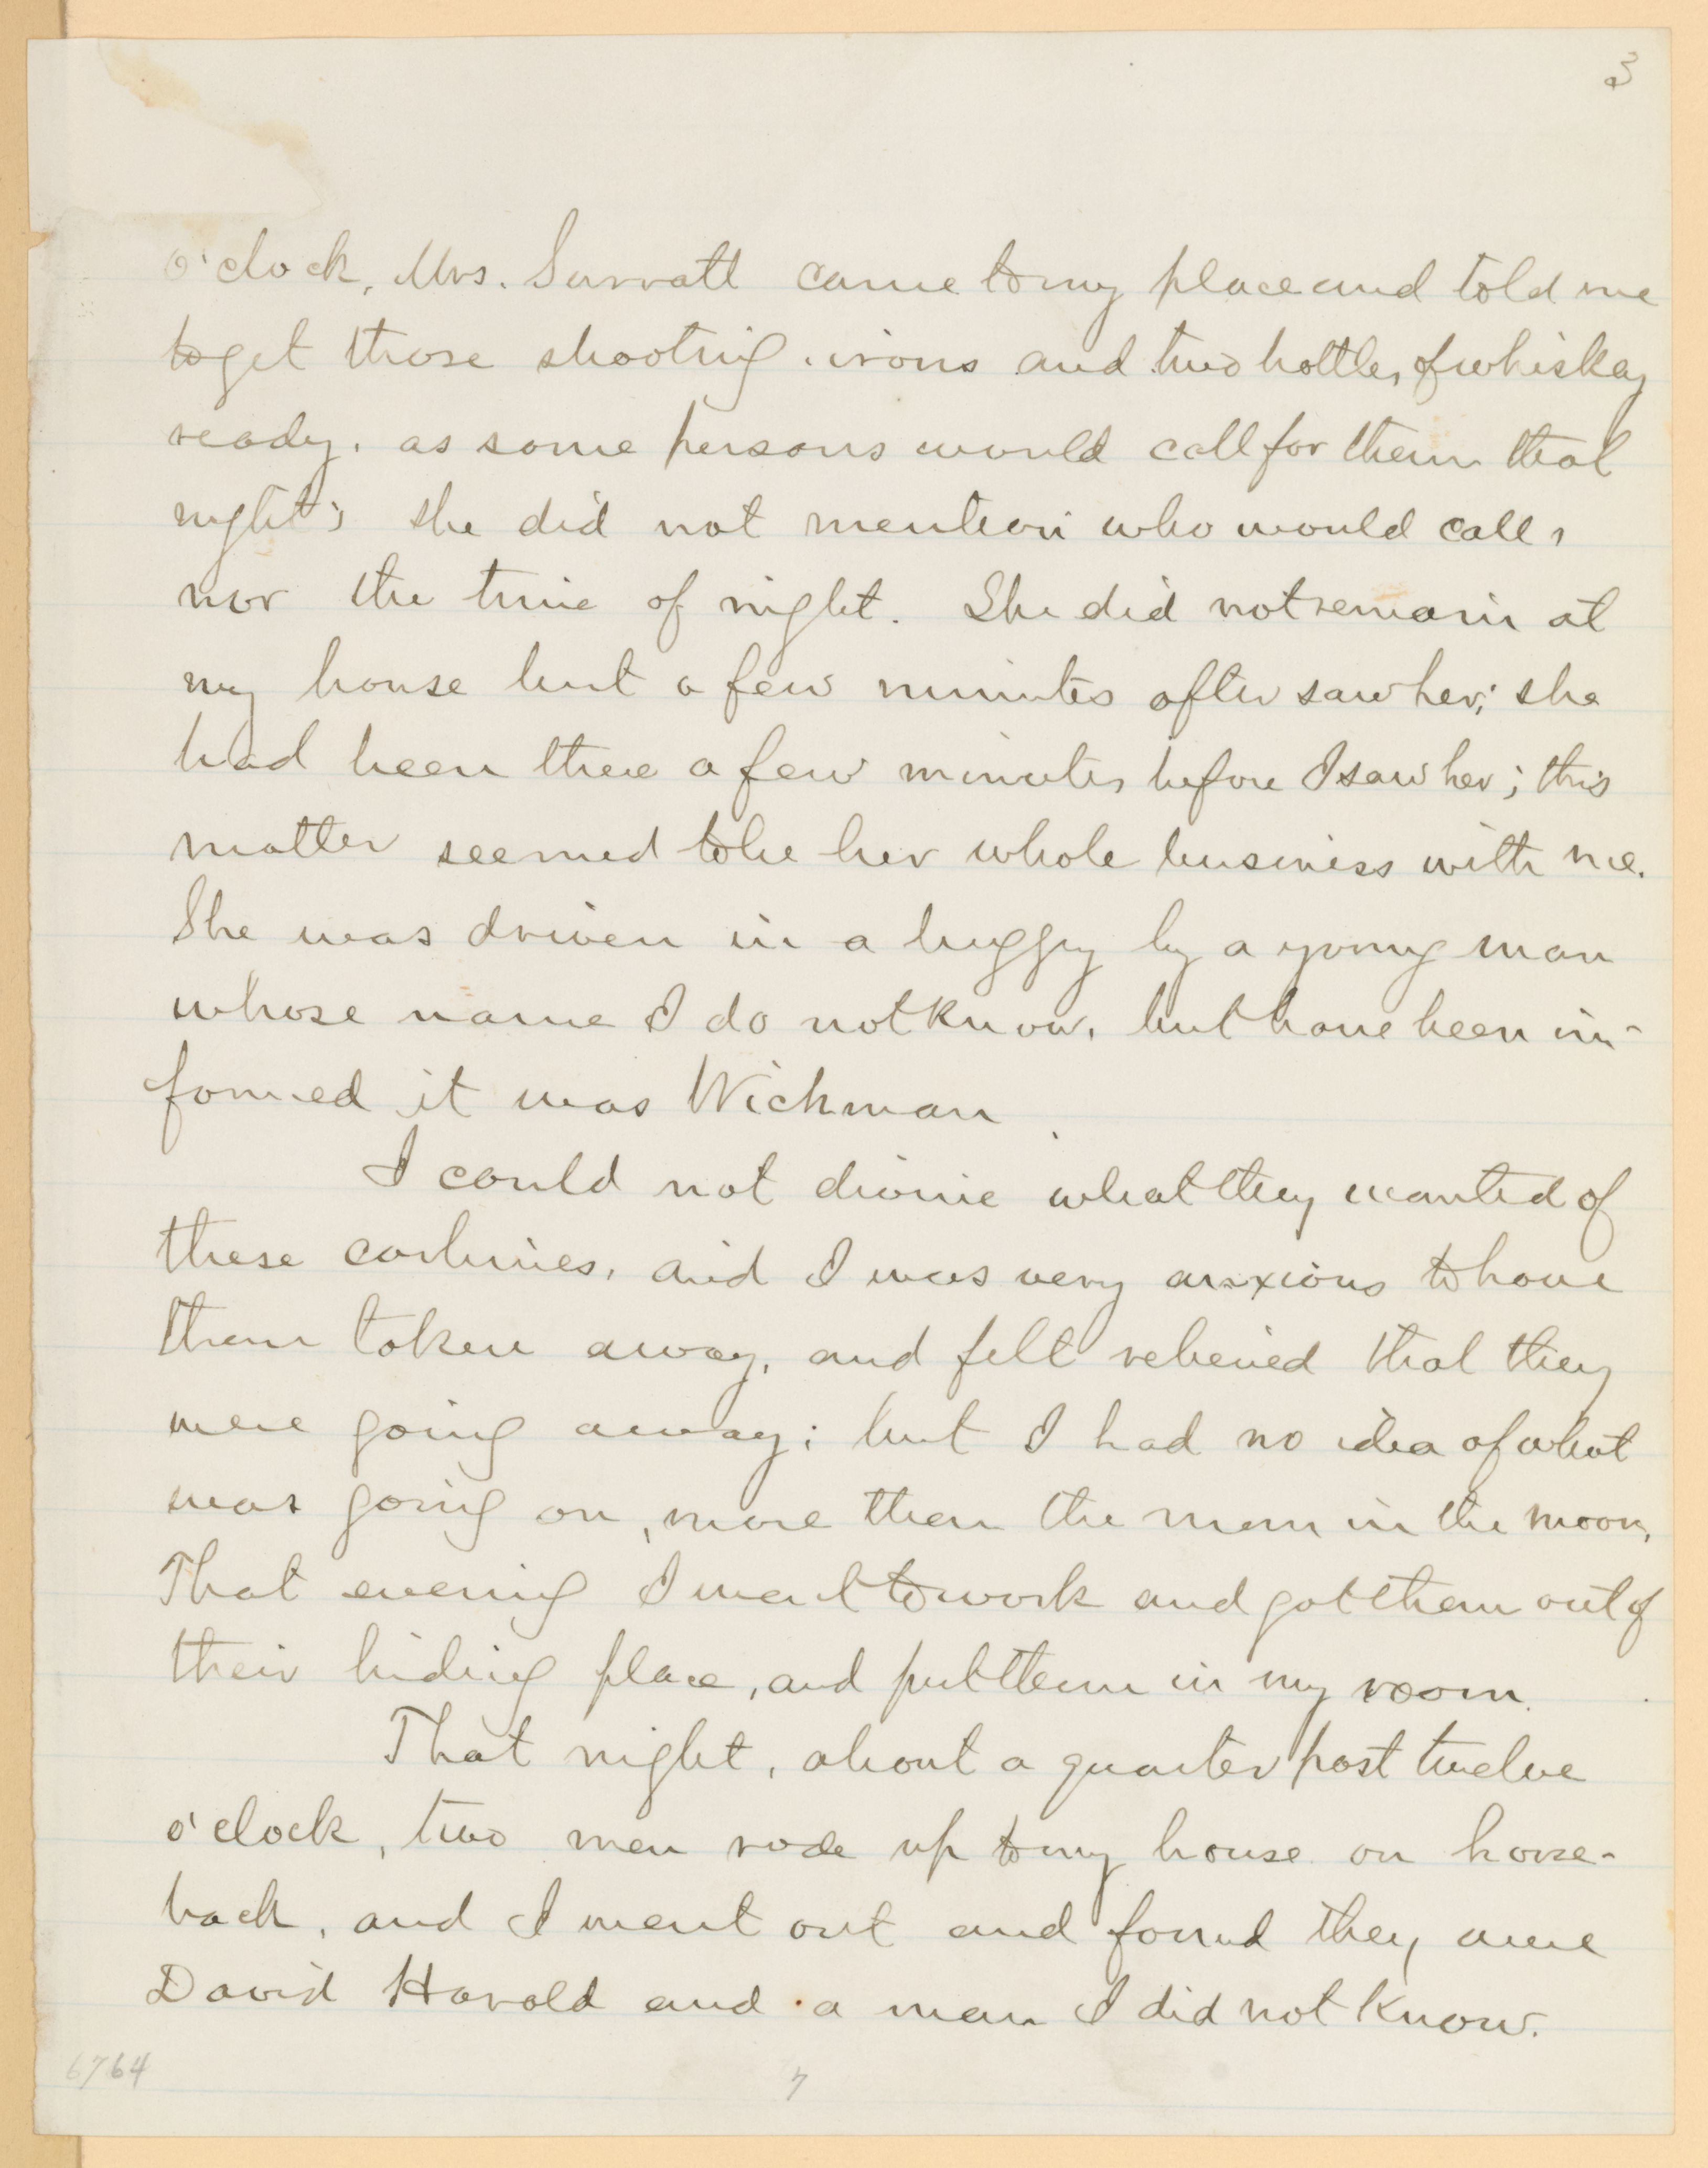 3
o'clock, Mrs. Surratt came to my place and told me
to get those shooting irons and two bottles of whiskey
ready, as some persons would call for them that
night; she did not mention who would call,
nor the time of night. She did not remain at
my house but a few minutes after saw her; she
had been there a few minutes before I saw her; this
matter seemed to be her whole business with me.
She was driven in a buggy by a young man
whose name I do not know, but have been in-
formed it was Wichman.
I could not divine what they wanted of
these carbines, and I was very anxious to have
them taken away, and felt relieved that they
were going away; but I had no idea of what
was going on, more than the man in the moon.
That evening I went to work and got them out of
their hiding place, and put them in my room.
That night, about a quarter past twelve
o'clock, two men rode up to my house on horse-
back, and I went out and found they were
David Harold and a man I did not know.
6764
7